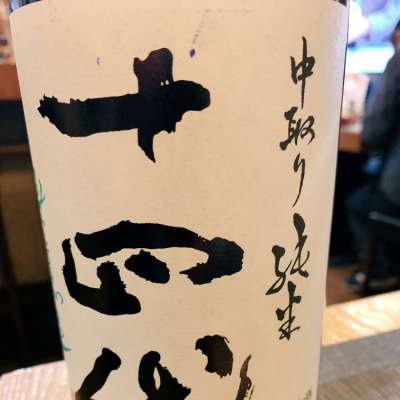 中取り純米
十四代